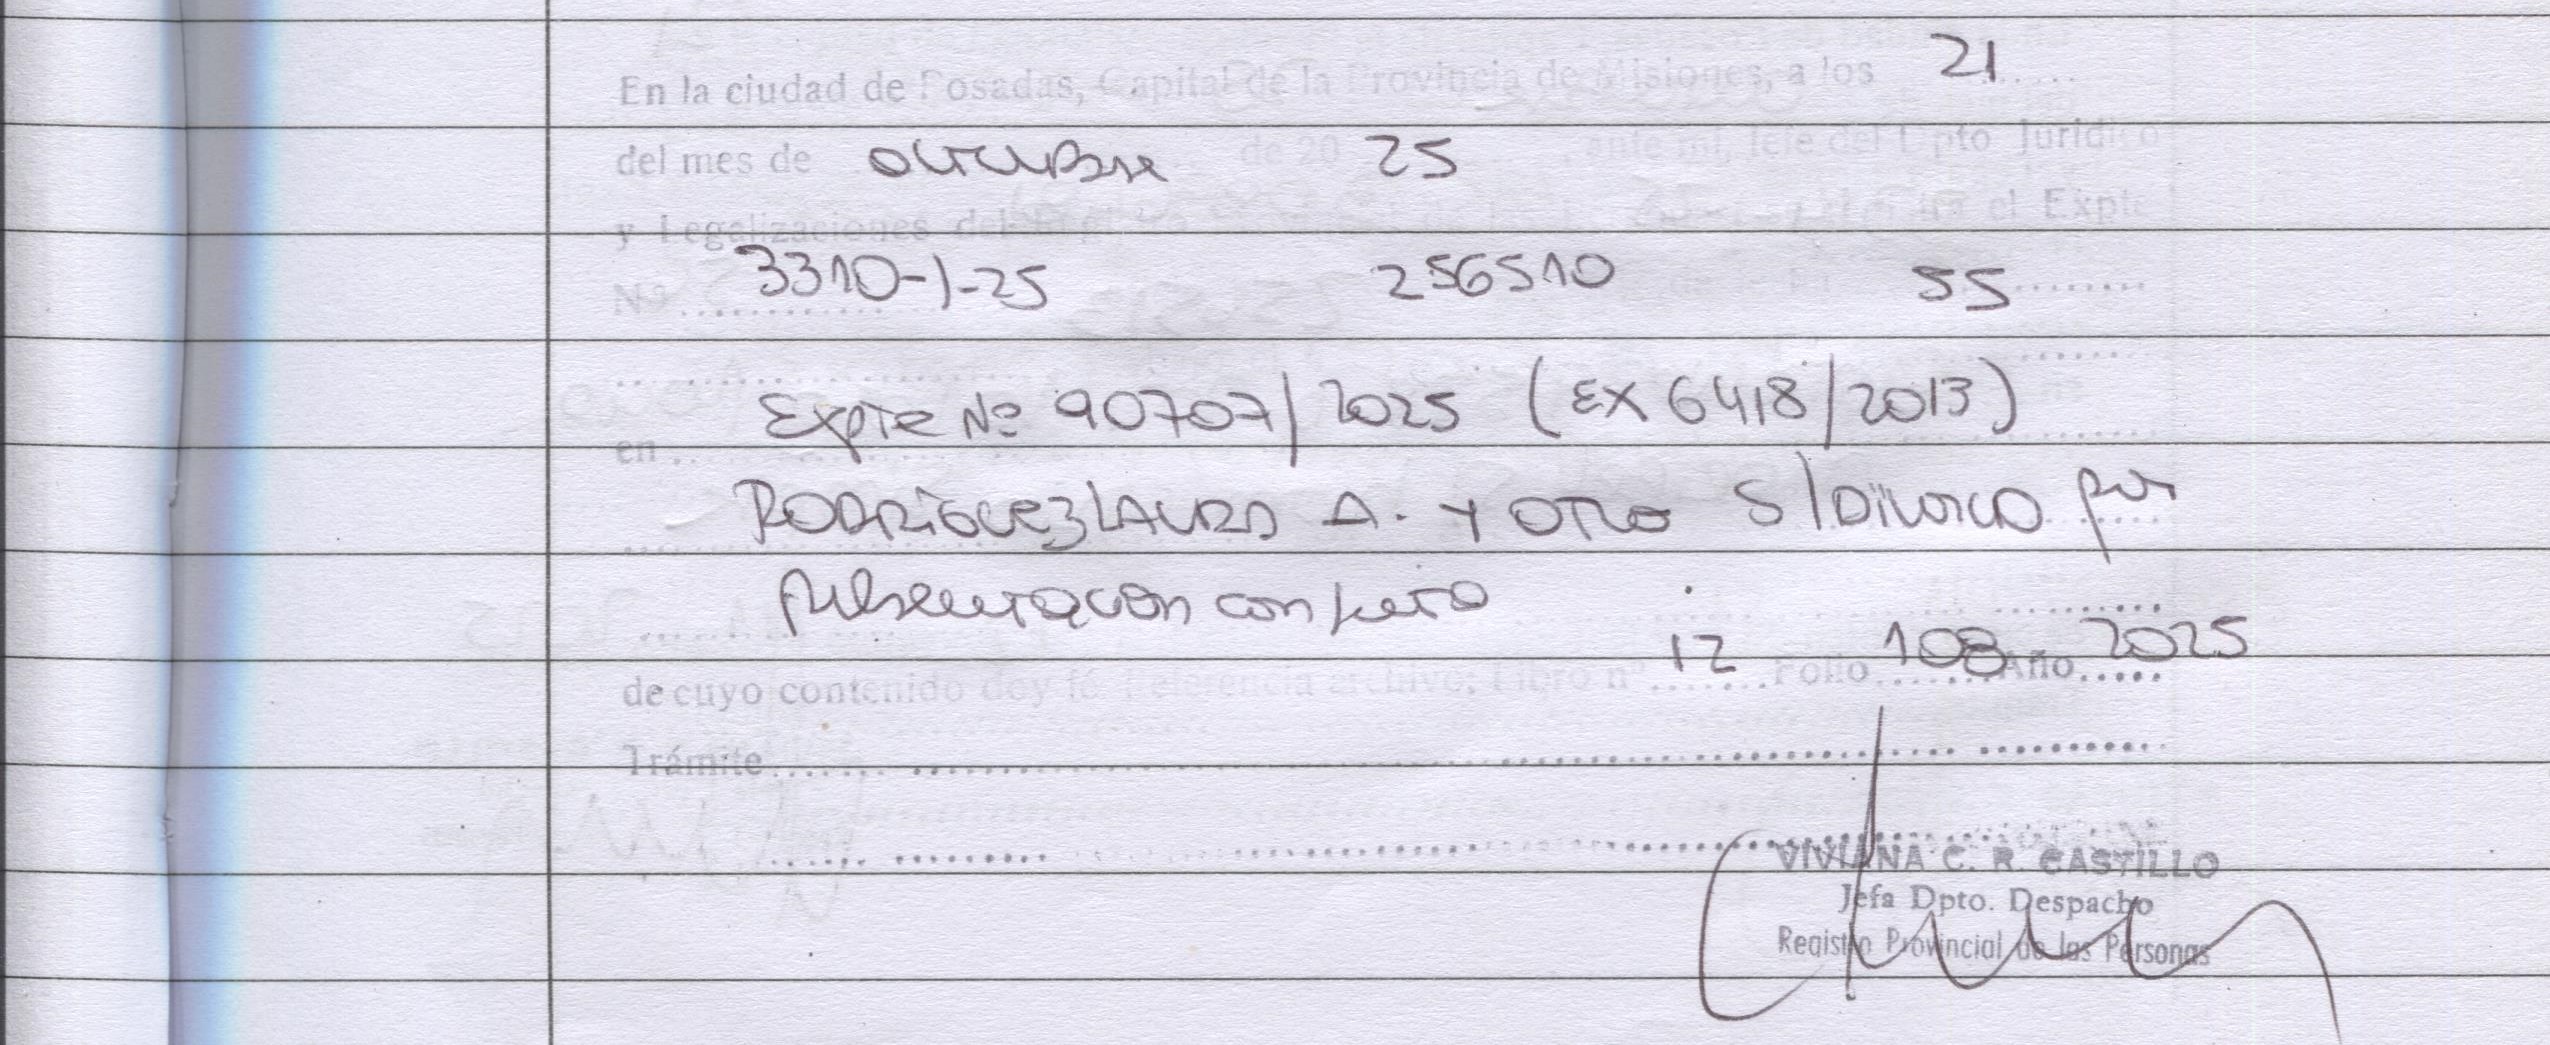 En la ciudad de Posadas, Capital de la Provincia de Misiones, a los 21
del mes de octubre de 20 25, ante mi, Jefe del Dpto Jurídico
y Legalizaciones del el Expte
Nº 3310-1-25 256510 55
Expte Nº 90707/2025 (EX 6418/2013)
en
RODRIGUEZ LAURA A. Y OTRO S/DIVORCIO por
presentación conjunta
de cuyo contenido doy fé. Referencia archivo; Libro nº 12 Folio 108 Año 2025
Trámite
VIVIANA C. R. CASTILLO
Jefa Dpto. Despacho
Registro Provincial de las Personas